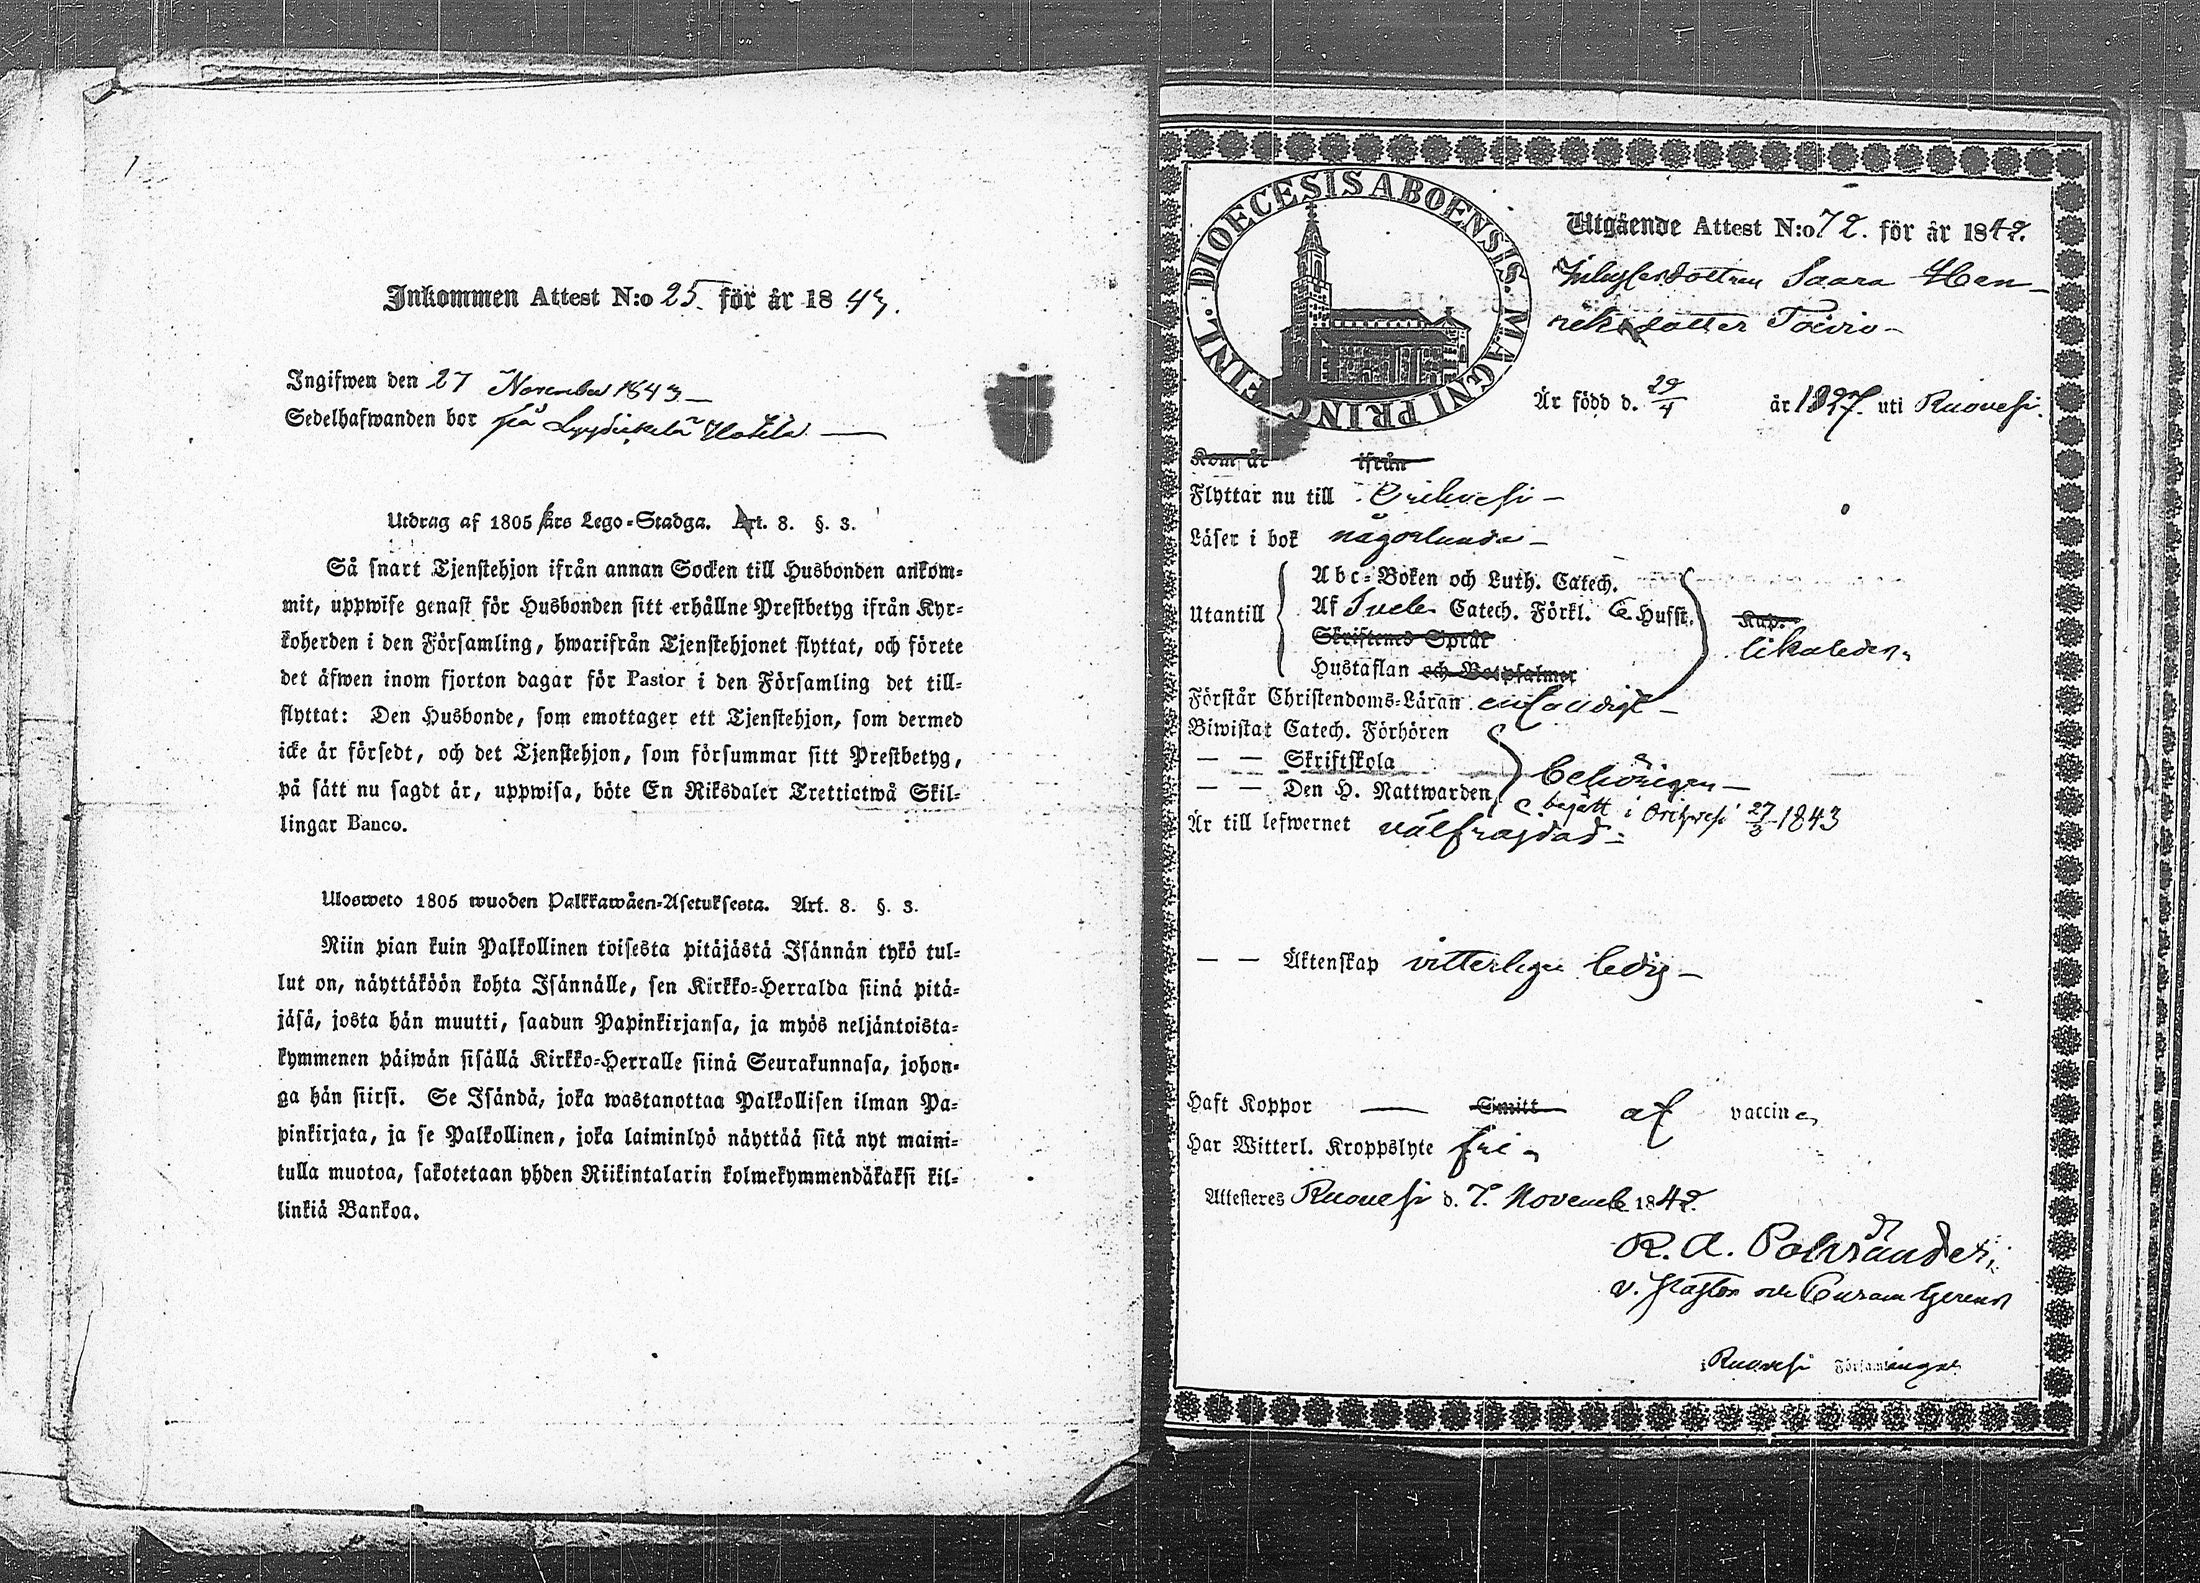 Inkommen Attest N:o 25. för år 1843.
Ingifwen den 27 November 1843
Sedelhafwanden bor på
Utdrag af 1805 års Lego-Stadga. Art. 8. §. 3.
Så snart Tjenstehjon ifrån annan Socken till Husbonden ankom-
mit, uppwise genast för Husbonden sitt erhållne Prestbetyg ifrån Kyr-
koherden i den Församling, hwarifrån Tjenstehjonet flyttat, och förete
det äfwen inom fjorton dagar för Pastor i den Församling det till-
flyttat: Den Husbonde, som emottager ett Tjenstehjon, som dermed
icke är försedt, och det Tjenstehjon, som försummar sitt Prestbetyg,
på sätt nu sagdt är, uppwisa, böte En Riksdaler Trettiotwå Skil-
lingar Banco.
Ulosweto 1805 wuoden Palkkawäen-Asetuksesta. Art. 8. §. 3.
Niin pian kuin Palkollinen toisesta pitäjästä Isännän tykö tul-
lut on, näyttäköön kohta Isännälle, sen Kirkko-Herralda siinä pitä-
jäsä, josta hän muutti, saadun Papinkirjansa, ja myös neljäntoista-
kymmenen päiwän sisällä Kirkko-Herralle siinä Seurakunnasa, johon-
ga hän siirsi. Se Isändä, joka wastanottaa Palkollisen ilman Pa-
pinkirjata, ja se Palkollinen, joka laiminlyö näyttää sitä nyt maini-
tulla muotoa, sakotetaan yhden Riikintalarin kolmekymmendäkaksi kil-
linkiä Bankoa.
DIOECESIS ABOENSIS. MAGNI PRINC FINL.
Utgående Attest N:o 72. för år 1842.
Inhysesdottren Saara Hen-
riksdotter Toivio-
Är född d. 29/4 år 1827. uti Ruovesi.
Kom år ifrån
Flyttar nu till Orihvesi-
Läser i bok någorlunda-
Utantill
Abc-Boken och Luth. Catech.
Af Sveb. Catech. Förkl. Hufst.
Skriftenes Språk
Hustaflan och Botpsalmer
Kap.
likaledes
Förstår Christendoms-Läran enfaldigt-
Biwistat Catech. Förhören
— — Skriftskola
— — Den H. Nattwarden
behörigen-
begått i Orihvesi 27/8 1843
Är till lefwernet välfrajdad-
— — Äktenskap vitterligen ledig-
Haft Koppor — Smitt af vaccin
Har Witterl. Kroppslyte fri
Attesteres Ruovesi d. 7. Novemb 1842.
R. A. Pohränder,
v. Pastor och Curam Gerens
i Ruovesi Församlingar